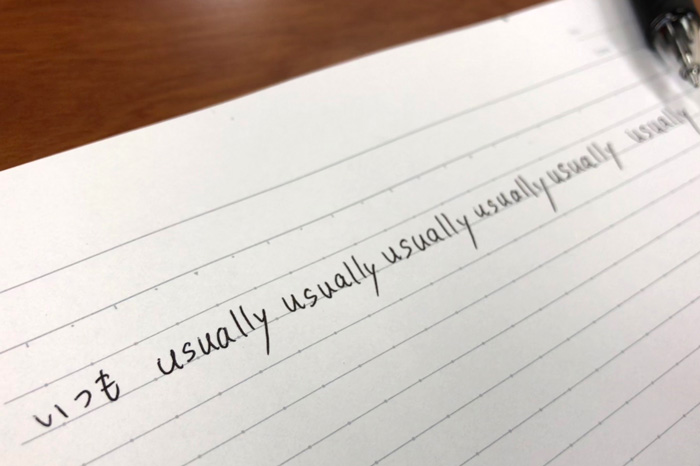 いつも usually usually usually usually usually usually